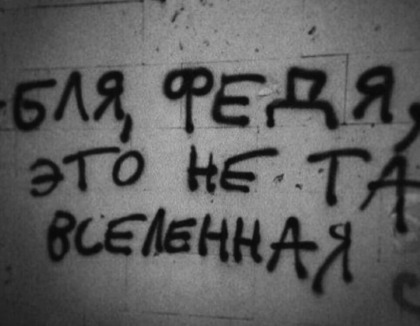 - БЛЯ, ФЕДЯ,
ЭТО НЕ ТА
ВСЕЛЕННАЯ